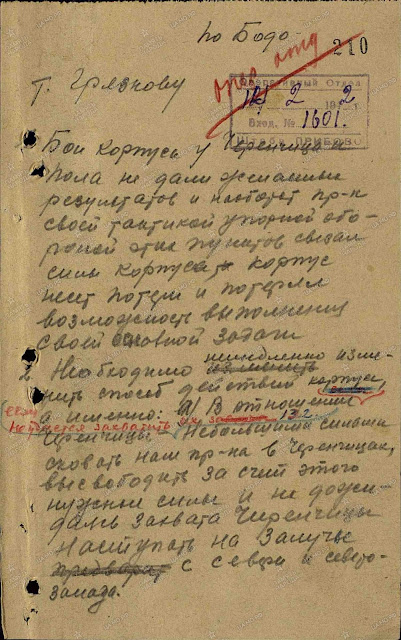 по Бодо
210
т. Грязнову
опер отд
Оперативный Отдел
12 2 2
Вход. № 1601.
Бои корпуса у Черенчицы и
Пола не дали желаемых
результатов и наоборот пр-к
своей тактикой упорной обо-
роной этих пунктов связал
силы корпуса корпус
несет потери и потерял
возможность выполнения
своей основной задачи
2. Необходимо немедленно изме-
нить способ действий корпуса,
а именно: а/ В отношении
если
не удается захватить их 13.2
Черенчицы Небольшими силами
сковать нам пр-ка в Черенчицах,
высвободить за счет этого
нужные силы и не дожи-
даясь захвата Черенчицы
Наступать на Залучье
с севера и северо-
запада.